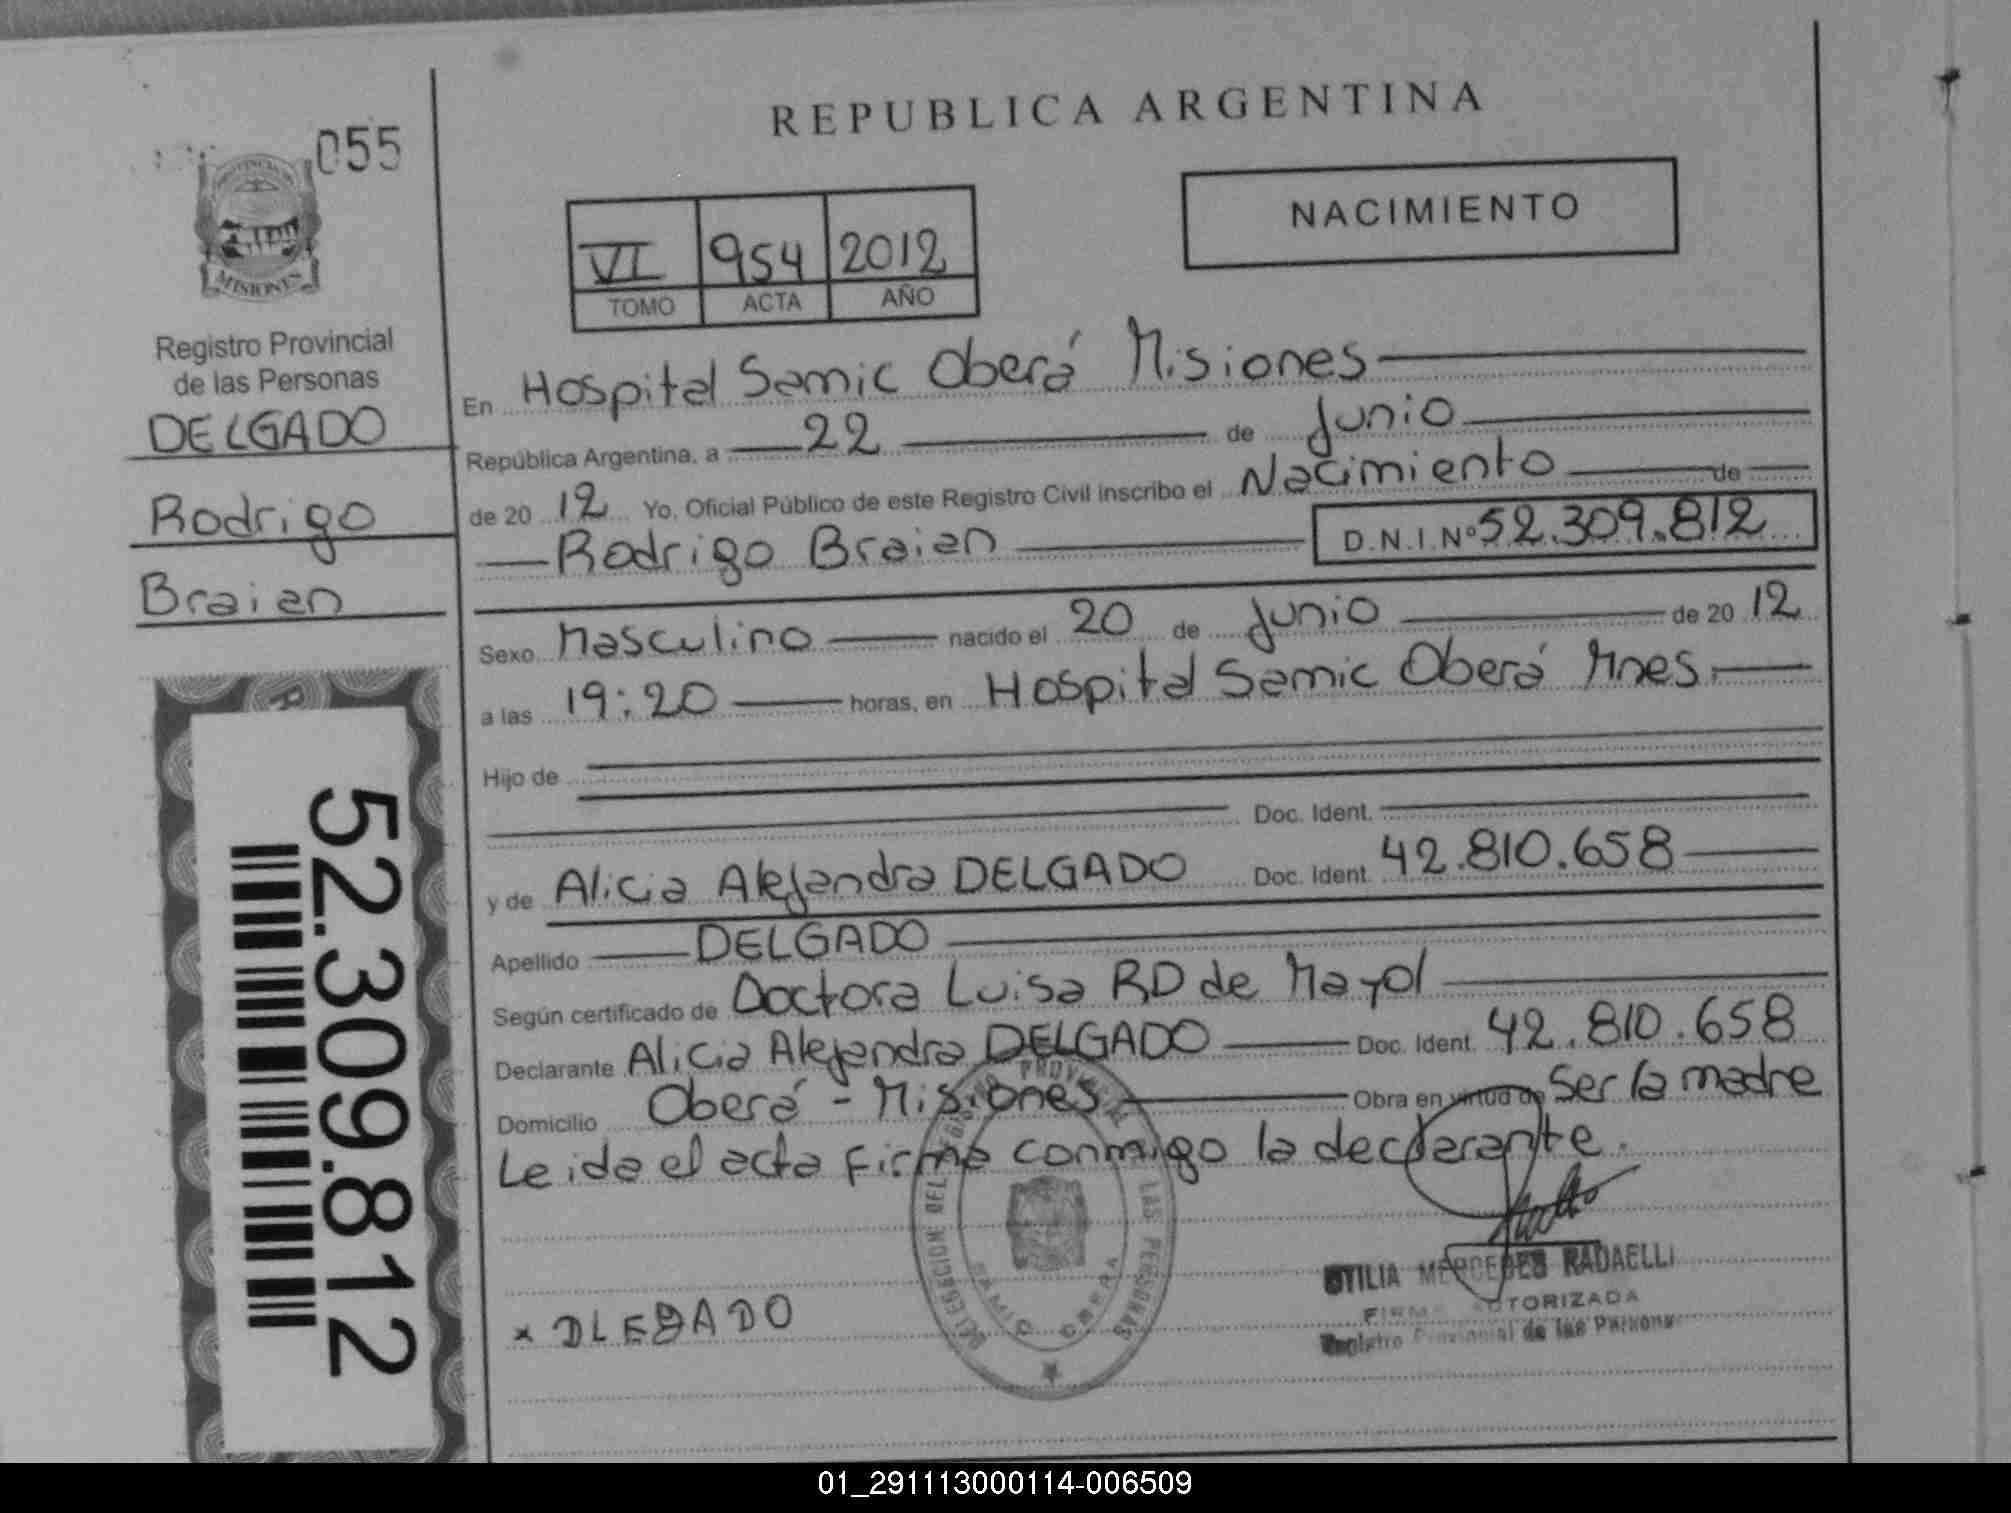 REPUBLICA ARGENTINA
055
NACIMIENTO
VI 954 2012
TOMO ACTA AÑO
MISIONES
Registro Provincial
de las Personas
DELGADO
Rodrigo
Braian
52.309.812
En Hospital Samic Oberá Misiones
República Argentina, a 22 de Junio
de 20 12 Yo, Oficial Público de este Registro Civil inscribo el Nacimiento de
Rodrigo Braian D.N.I.Nº 52.309.812
Sexo Masculino nacido el 20 de Junio de 20 12
a las 19:20 horas, en Hospital Samic Oberá Mnes.
Hijo de
Doc. Ident.
y de Alicia Alejandra DELGADO Doc. Ident. 42.810.658
Apellido DELGADO
Según certificado de Doctora Luisa RD de Mayol
Declarante Alicia Alejandra DELGADO Doc. Ident. 42.810.658
Domicilio Oberá - Misiones Obra en virtud de Ser la madre
Leida el acta firma conmigo la declarante.
DELEGACION DEL REGISTRO PROVINCIAL LAS PERSONAS
SAMIC OBERA
x DLEGADO
OTILIA MERCEDES RADAELLI
FIRMA AUTORIZADA
Registro Provincial de las Personas
01_291113000114-006509